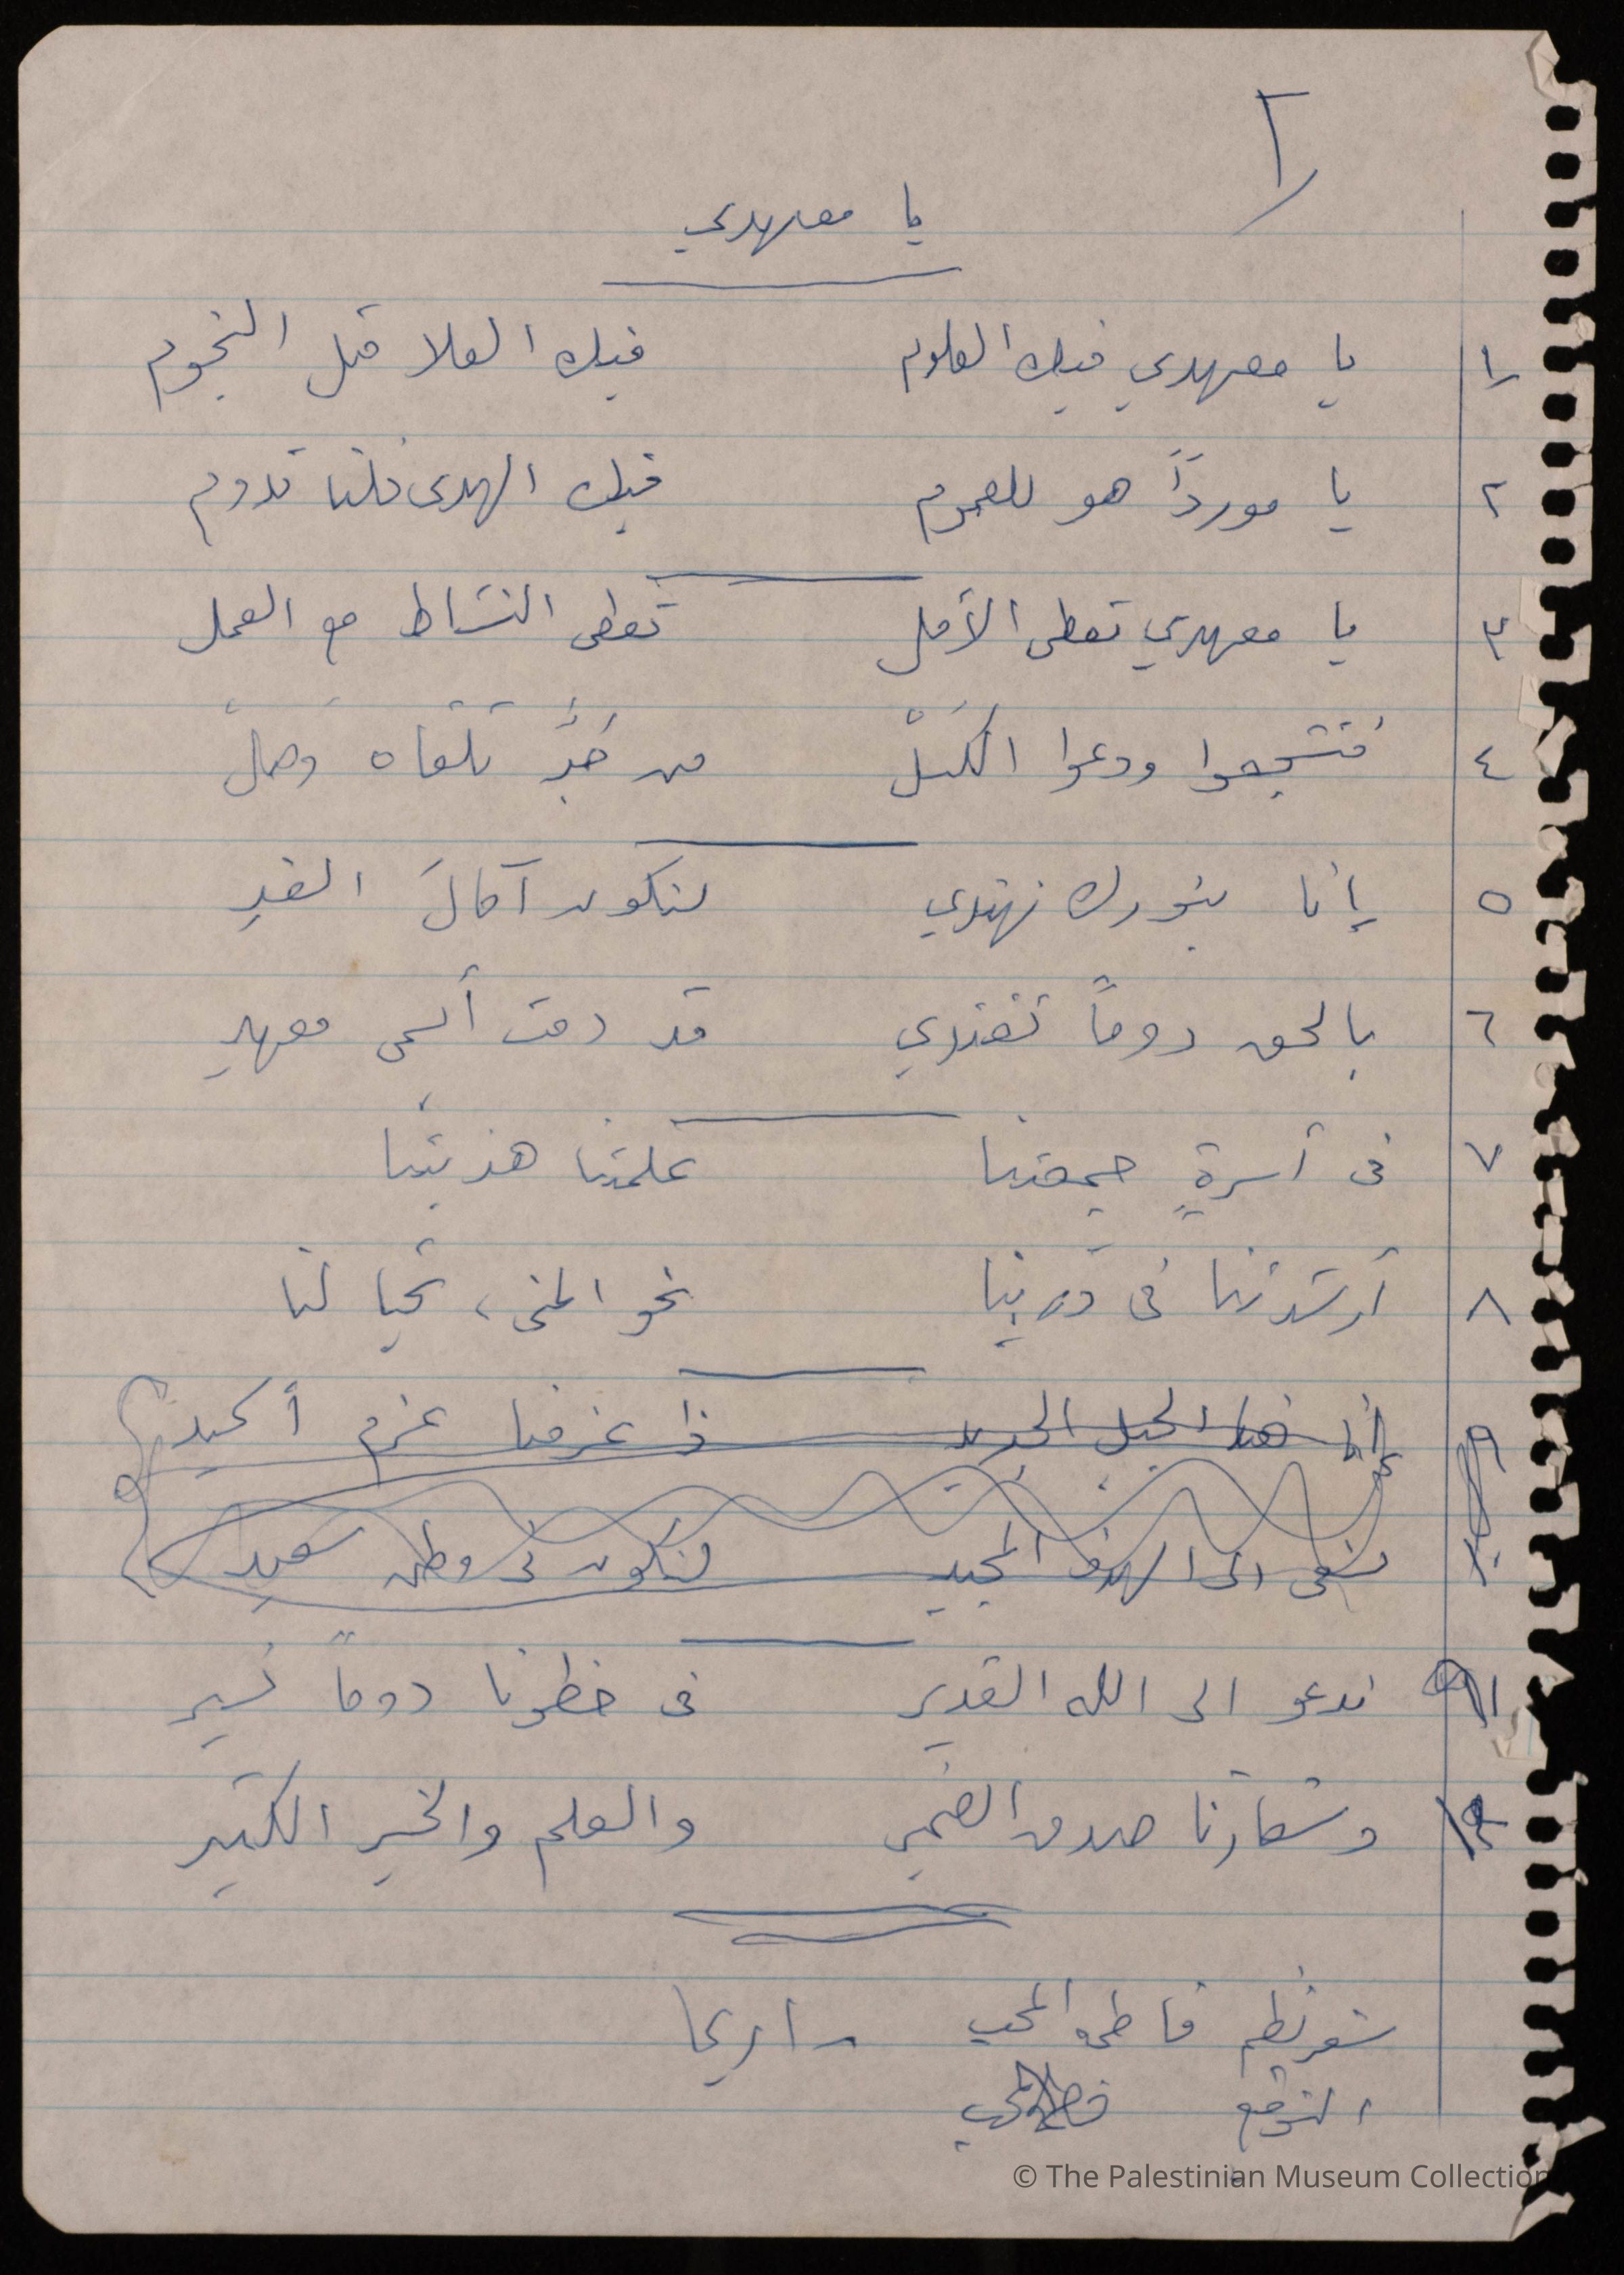 يا معهدي
١ يا معهدي فيك العلوم فيك العلا مثل النجوم
٢ يا مورداً هو للعموم فيك الهدى فلنا تدوم
٣ يا معهدي تعطى الأمل تعطى النشاط مع العمل
٤ فتشجعوا ودعوا الكسَلْ من جَدَّ تلقاه وَصَلْ
٥ إنا بنورك نهتدي لنكون آمالَ الغدِ
٦ بالحق دوماً تفتدي قد دمت أسمى معهدِ
٧ فى أسرةٍ جمعتنا علمتنا هذبتنا
٨ أرشدتنا فى دَربنا نحو المنى، تحيا لنا
٩ هنا الجيل الجديد ذا عزمنا عزم أكيد
١٠ نسعى الى الهدف المجيد لنكون فى وطن سعيد
ندعو الى الله القدير فى خطونا دوماً نسير
وشعارنا صدق الضمير والعلم والخير الكثير
شعر نظم فاطمه المحب - اريحا
التوقيع
© The Palestinian Museum Collection